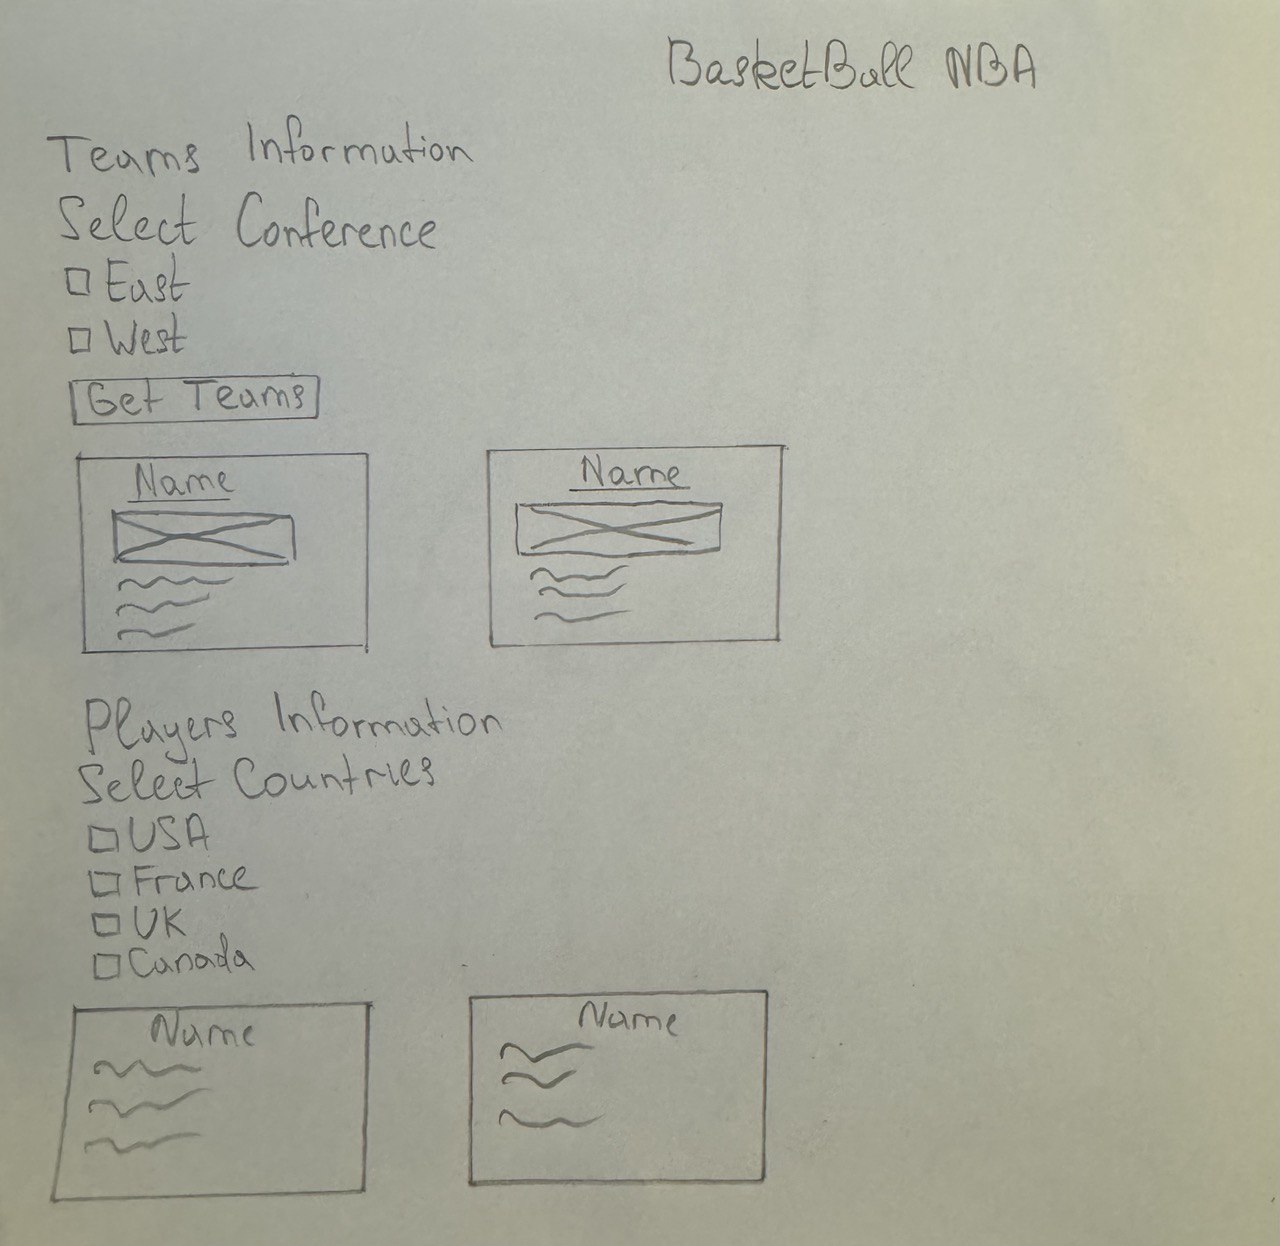 BasketBall NBA
Teams Information
Select Conference
East
West
Get Teams
Name
Name
Players Information
Select Countries
USA
France
UK
Canada
Name
Name